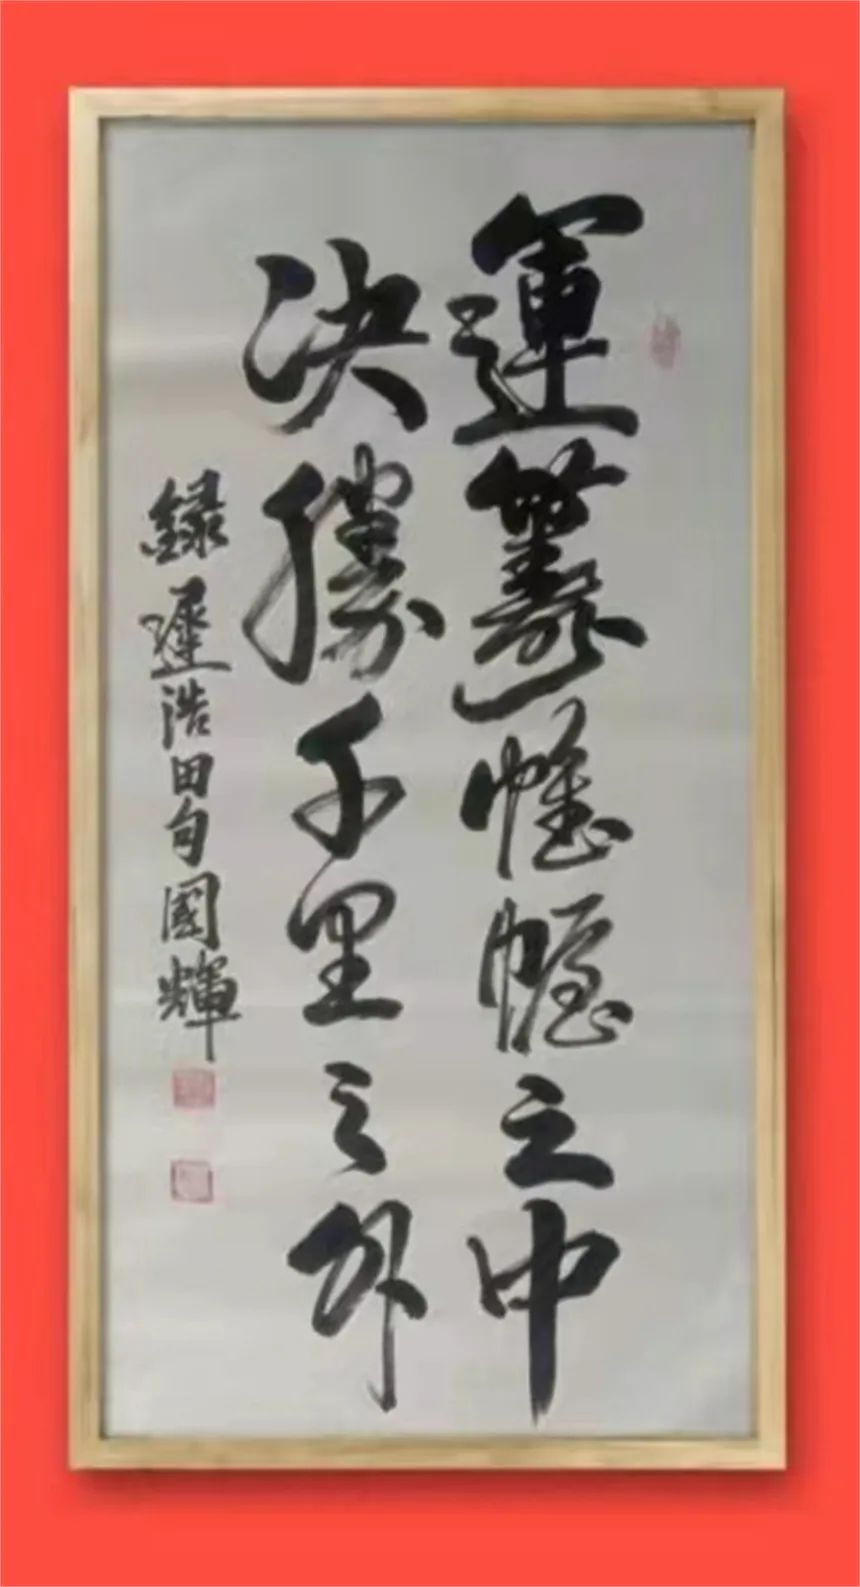 運籌帷幄之中
決勝千里之外
録遲浩田句國輝